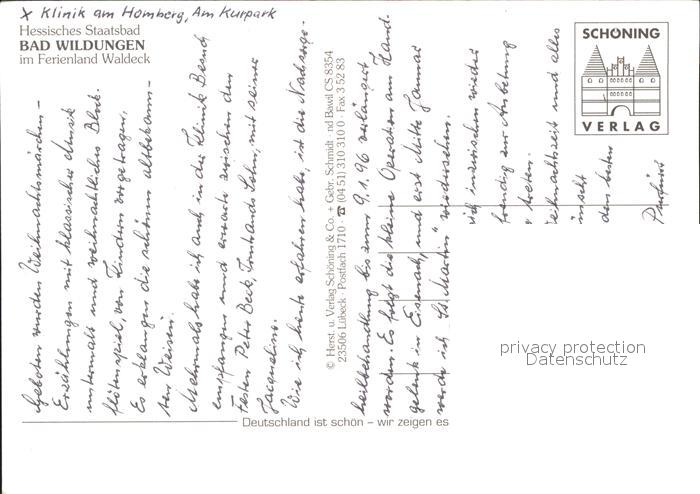 x Klinik am Homberg, Am Kurpark
Hessisches Staatsbad
BAD WILDUNGEN
im Ferienland Waldeck
Geboten wurden Weihnachtsmärchen-
Erzählungen mit klassischer Musik
untermalt und weihnachtliches Block-
flötenspiel, von Kindern vorgetragen,
Es erklangen die schönen altbekann-
ten Weisen.
Mehrmals habe ich auch in der Klinik Besuch
empfangen und erwarte zwischen den
Festen Peter Beck, Sohn, mit seiner
Jacqueline.
Wie ich heute erfahren habe, ist die Nachsorge-
heilbehandlung bis zum 9.1.96 verlängert
worden. Es folgt die kleine Operation am Hand-
gelenk in Eisenach, und erst Mitte Januar
werde ich "St. Martin" wiedersehen.
ich inzwischen wieder
freudig zur Anbetung
treten.
eihnachtszeit und alles
ünscht
den besten
© Herst. u. Verlag Schöning & Co. + Gebr. Schmidt nd Bawil CS 8354
23506 Lübeck · Postfach 1710 · ☎ (04 51) 310 310 0 · Fax 3 52 83
Deutschland ist schön – wir zeigen es
SCHÖNING
VERLAG
privacy protection
Datenschutz